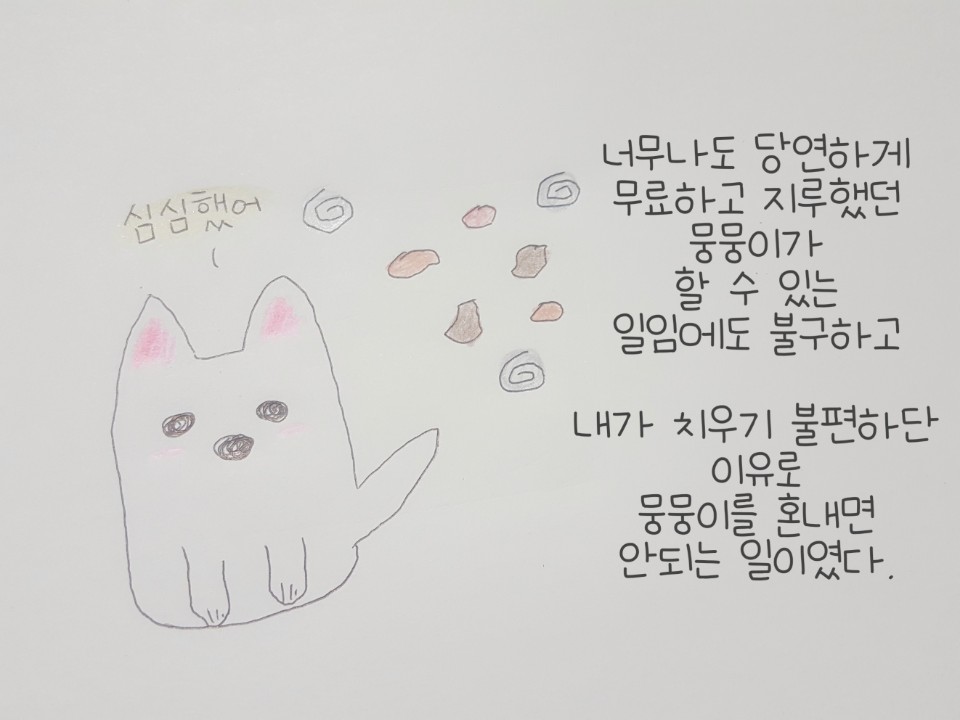 심심했어
너무나도 당연하게
무료하고 지루했던
뭉뭉이가
할 수 있는
일임에도 불구하고
내가 치우기 불편하단
이유로
뭉뭉이를 혼내면
안되는 일이였다.